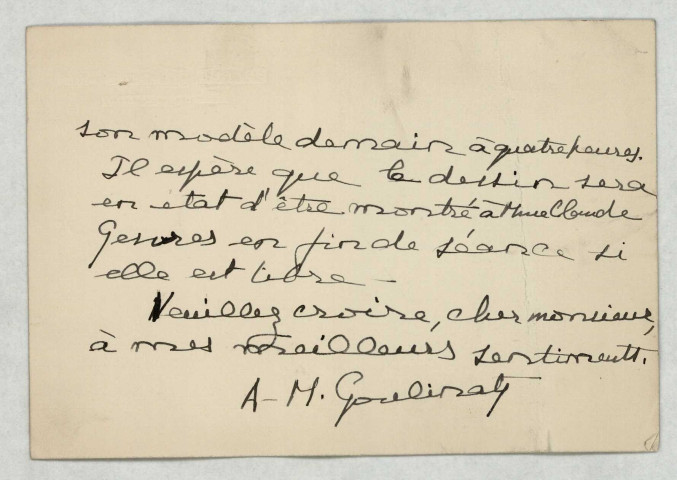 son modèle demain à quatre heures.
Il espère que le dessin sera
en état d'être montré à Mme Claude
Gesvres en fin de séance si
elle est libre —
Veuillez croire, cher monsieur,
à mes meilleurs sentiments.
A-M. Goulinat